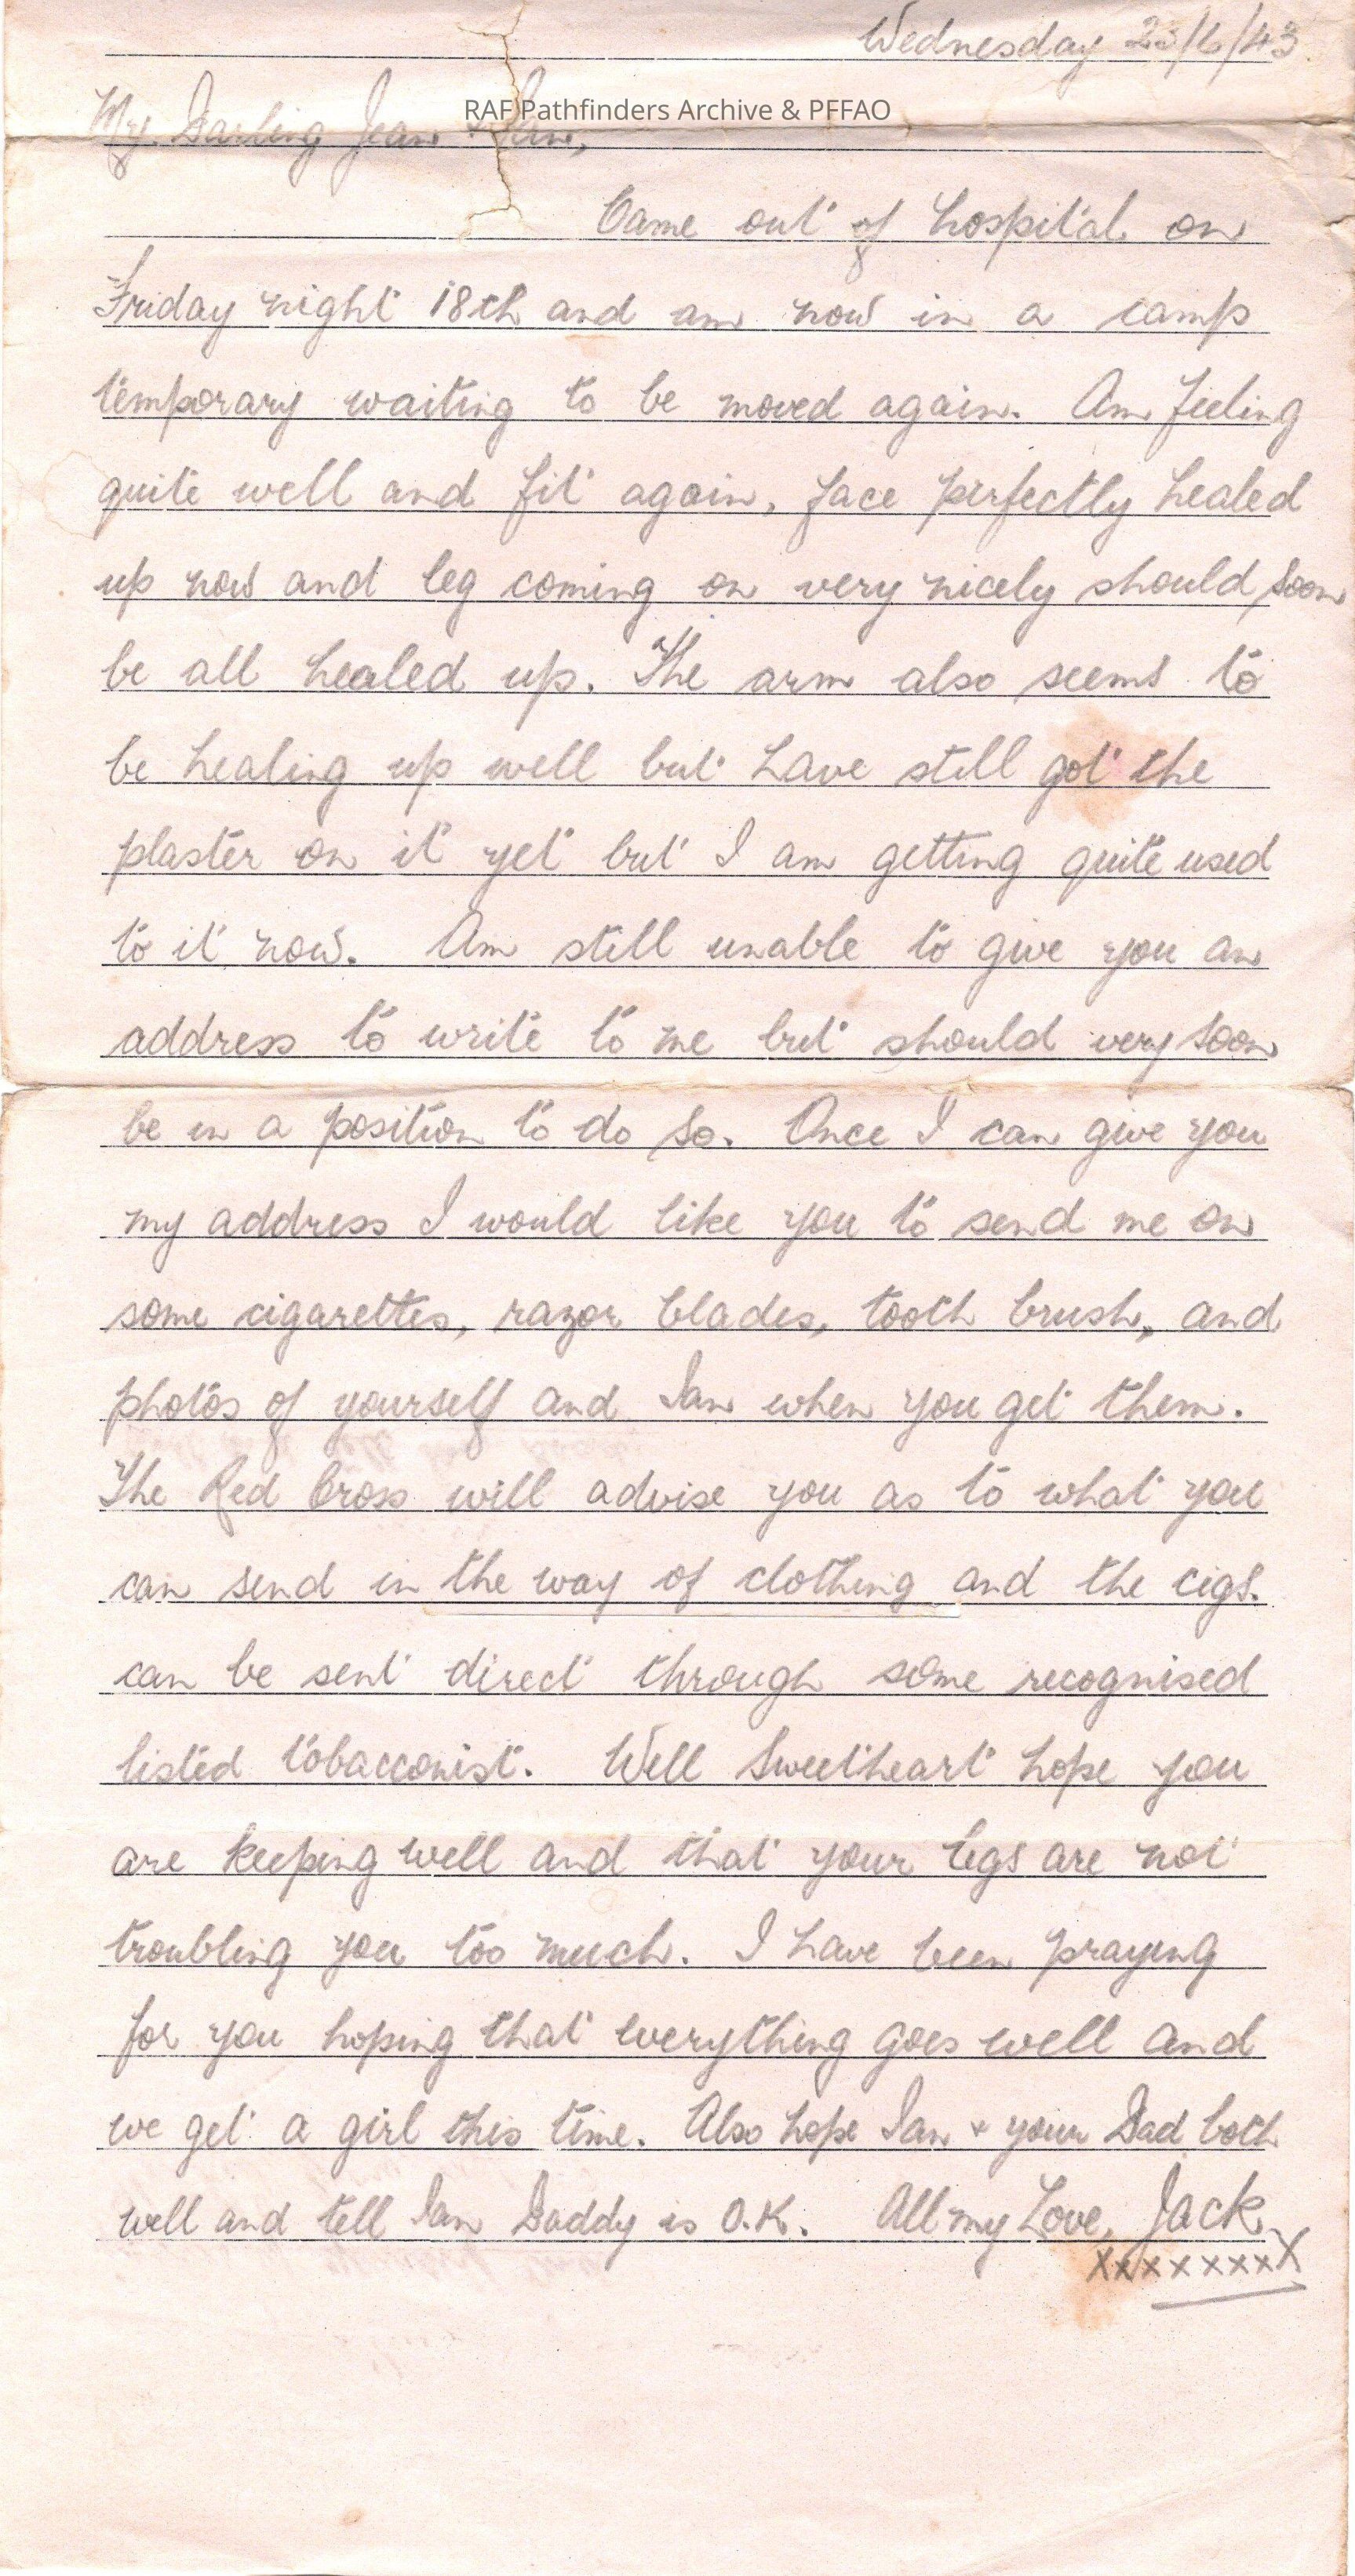 Wednesday 23/6/43
RAF Pathfinders Archive & PFFAO
My Darling Jean + Ian,
Came out of hospital on
Friday night 18th and am now in a camp
temporary waiting to be moved again. Am feeling
quite well and fit again, face perfectly healed
up now and leg coming on very nicely should soon
be all healed up. The arm also seems to
be healing up well but have still got the
plaster on it yet but I am getting quite used
to it now. Am still unable to give you an
address to write to me but should very soon
be in a position to do so. Once I can give you
my address I would like you to send me on
some cigarettes, razor blades, tooth brush, and
photos of yourself and Ian when you get them.
The Red Cross will advise you as to what you
can send in the way of clothing and the cigs.
can be sent direct through some recognised
listed tobacconist. Well Sweetheart hope you
are keeping well and that your legs are not
troubling you too much. I have been praying
for you hoping that everything goes well and
we get a girl this time. Also hope Ian + your Dad both
well and tell Ian Daddy is O.K. All my Love, Jack
xxxxxxxx